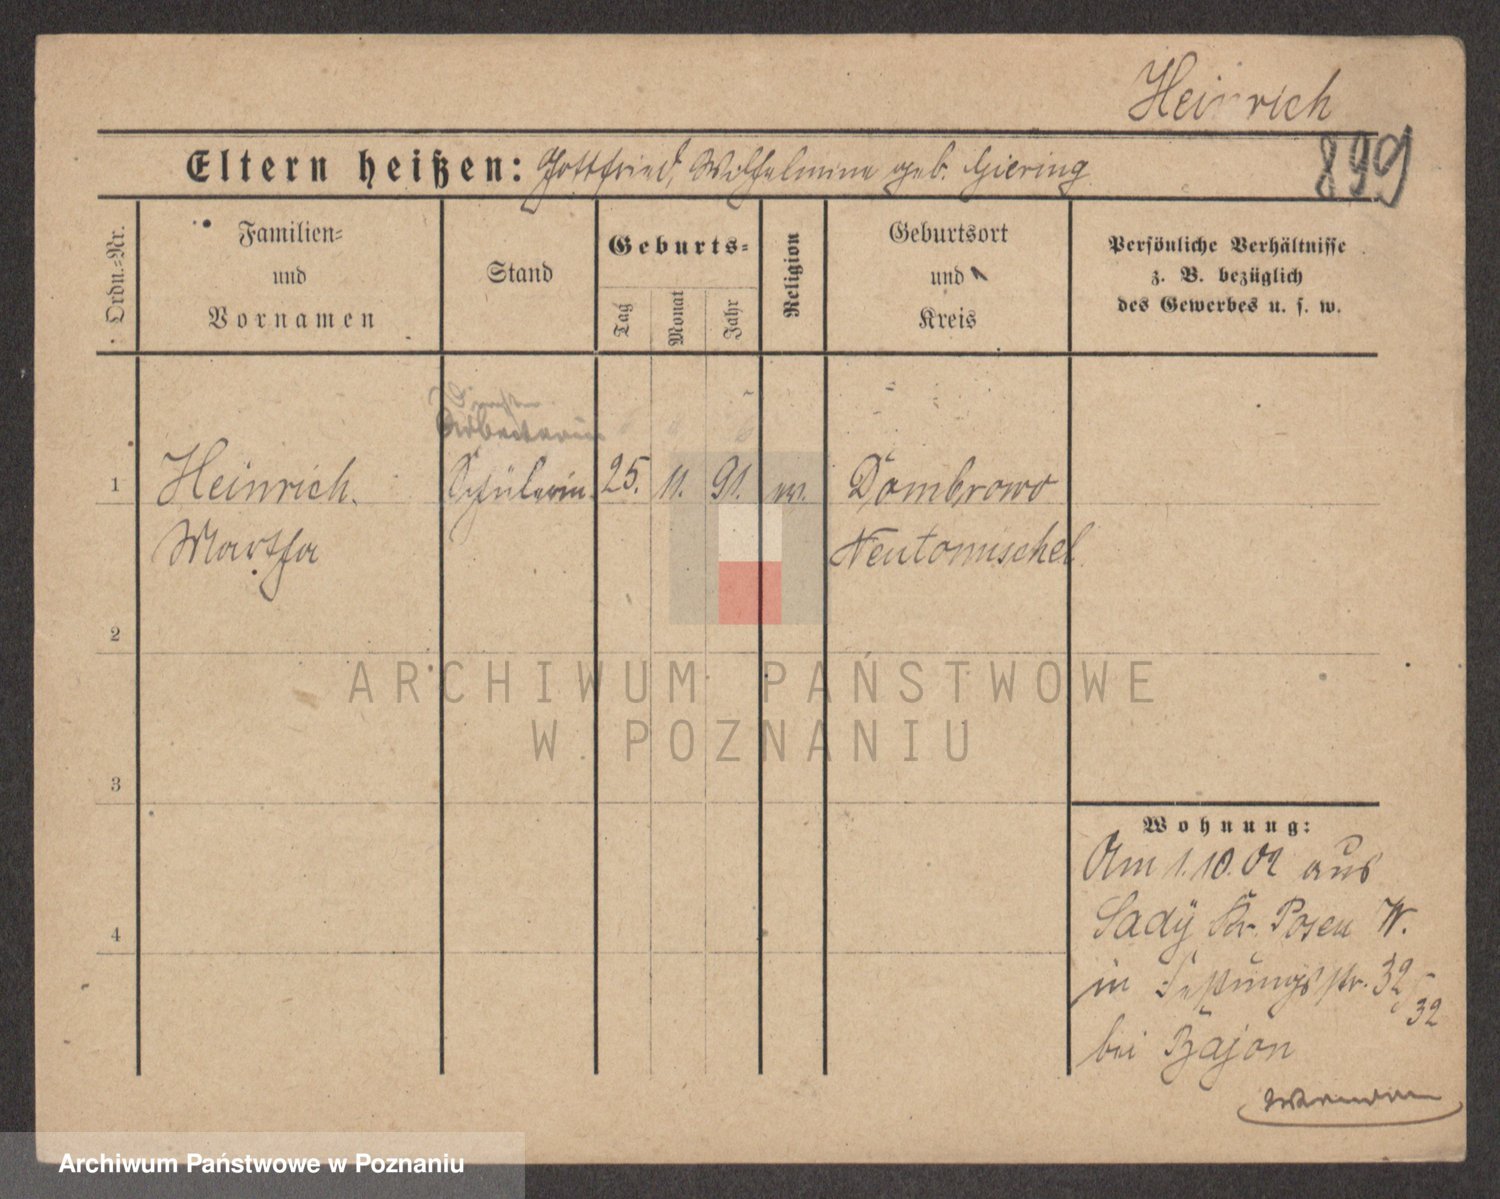 Heinrich
899
Eltern heißen: Gottfried, Wilhelmine geb. Giering
Ordn.-Nr.
Familien-
und
Vornamen
Stand
Geburts-
Tag
Monat
Jahr
Religion
Geburtsort
und
Kreis
Persönliche Verhältnisse
z. B. bezüglich
des Gewerbes u. s. w.
Arbeiterin
1 Heinrich. Schülerin 25. 11. 91. ev. Dombrowo
Martha Neutomischel
2
3
4
Wohnung:
Am 1.10.02 aus
Sady Kr. Posen W.
in Festungsstr. 32/32
bei Bajon
ARCHIWUM PAŃSTWOWE
W POZNANIU
Archiwum Państwowe w Poznaniu